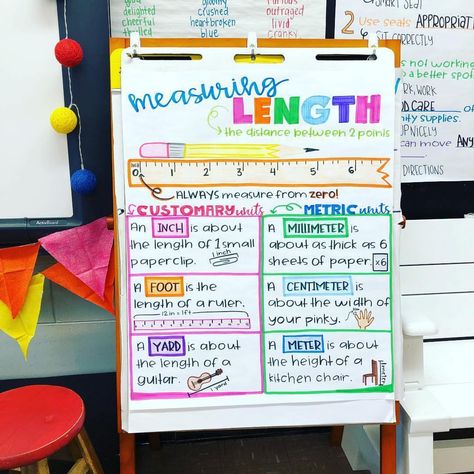 delighted
cheerful
thrilled
gloomy
crushed
heartbroken
blue
furious
outraged
livid
cranky
SMART SEAT
2 USE SEATS APPROPRIAT
SIT CORRECTLY
not working
a better spot
RK, WORK
D CARE OF
unity supplies.
UP NICELY
can move ANY
DIRECTIONS
measuring
LENGTH
the distance between 2 points
0 1 2 3 4 5 6
ALWAYS measure from zero!
CUSTOMARY units
METRIC units
An INCH is about
the length of 1 small
paperclip.
1 inch
A FOOT is the
length of a ruler.
12 in = 1ft
A YARD is about
the length of a
guitar.
1 yard
A MILLIMETER is
about as thick as 6
sheets of paper. x6
A CENTIMETER is
about the width of
your pinky.
A METER is about
the height of a
kitchen chair.
ActivBoard